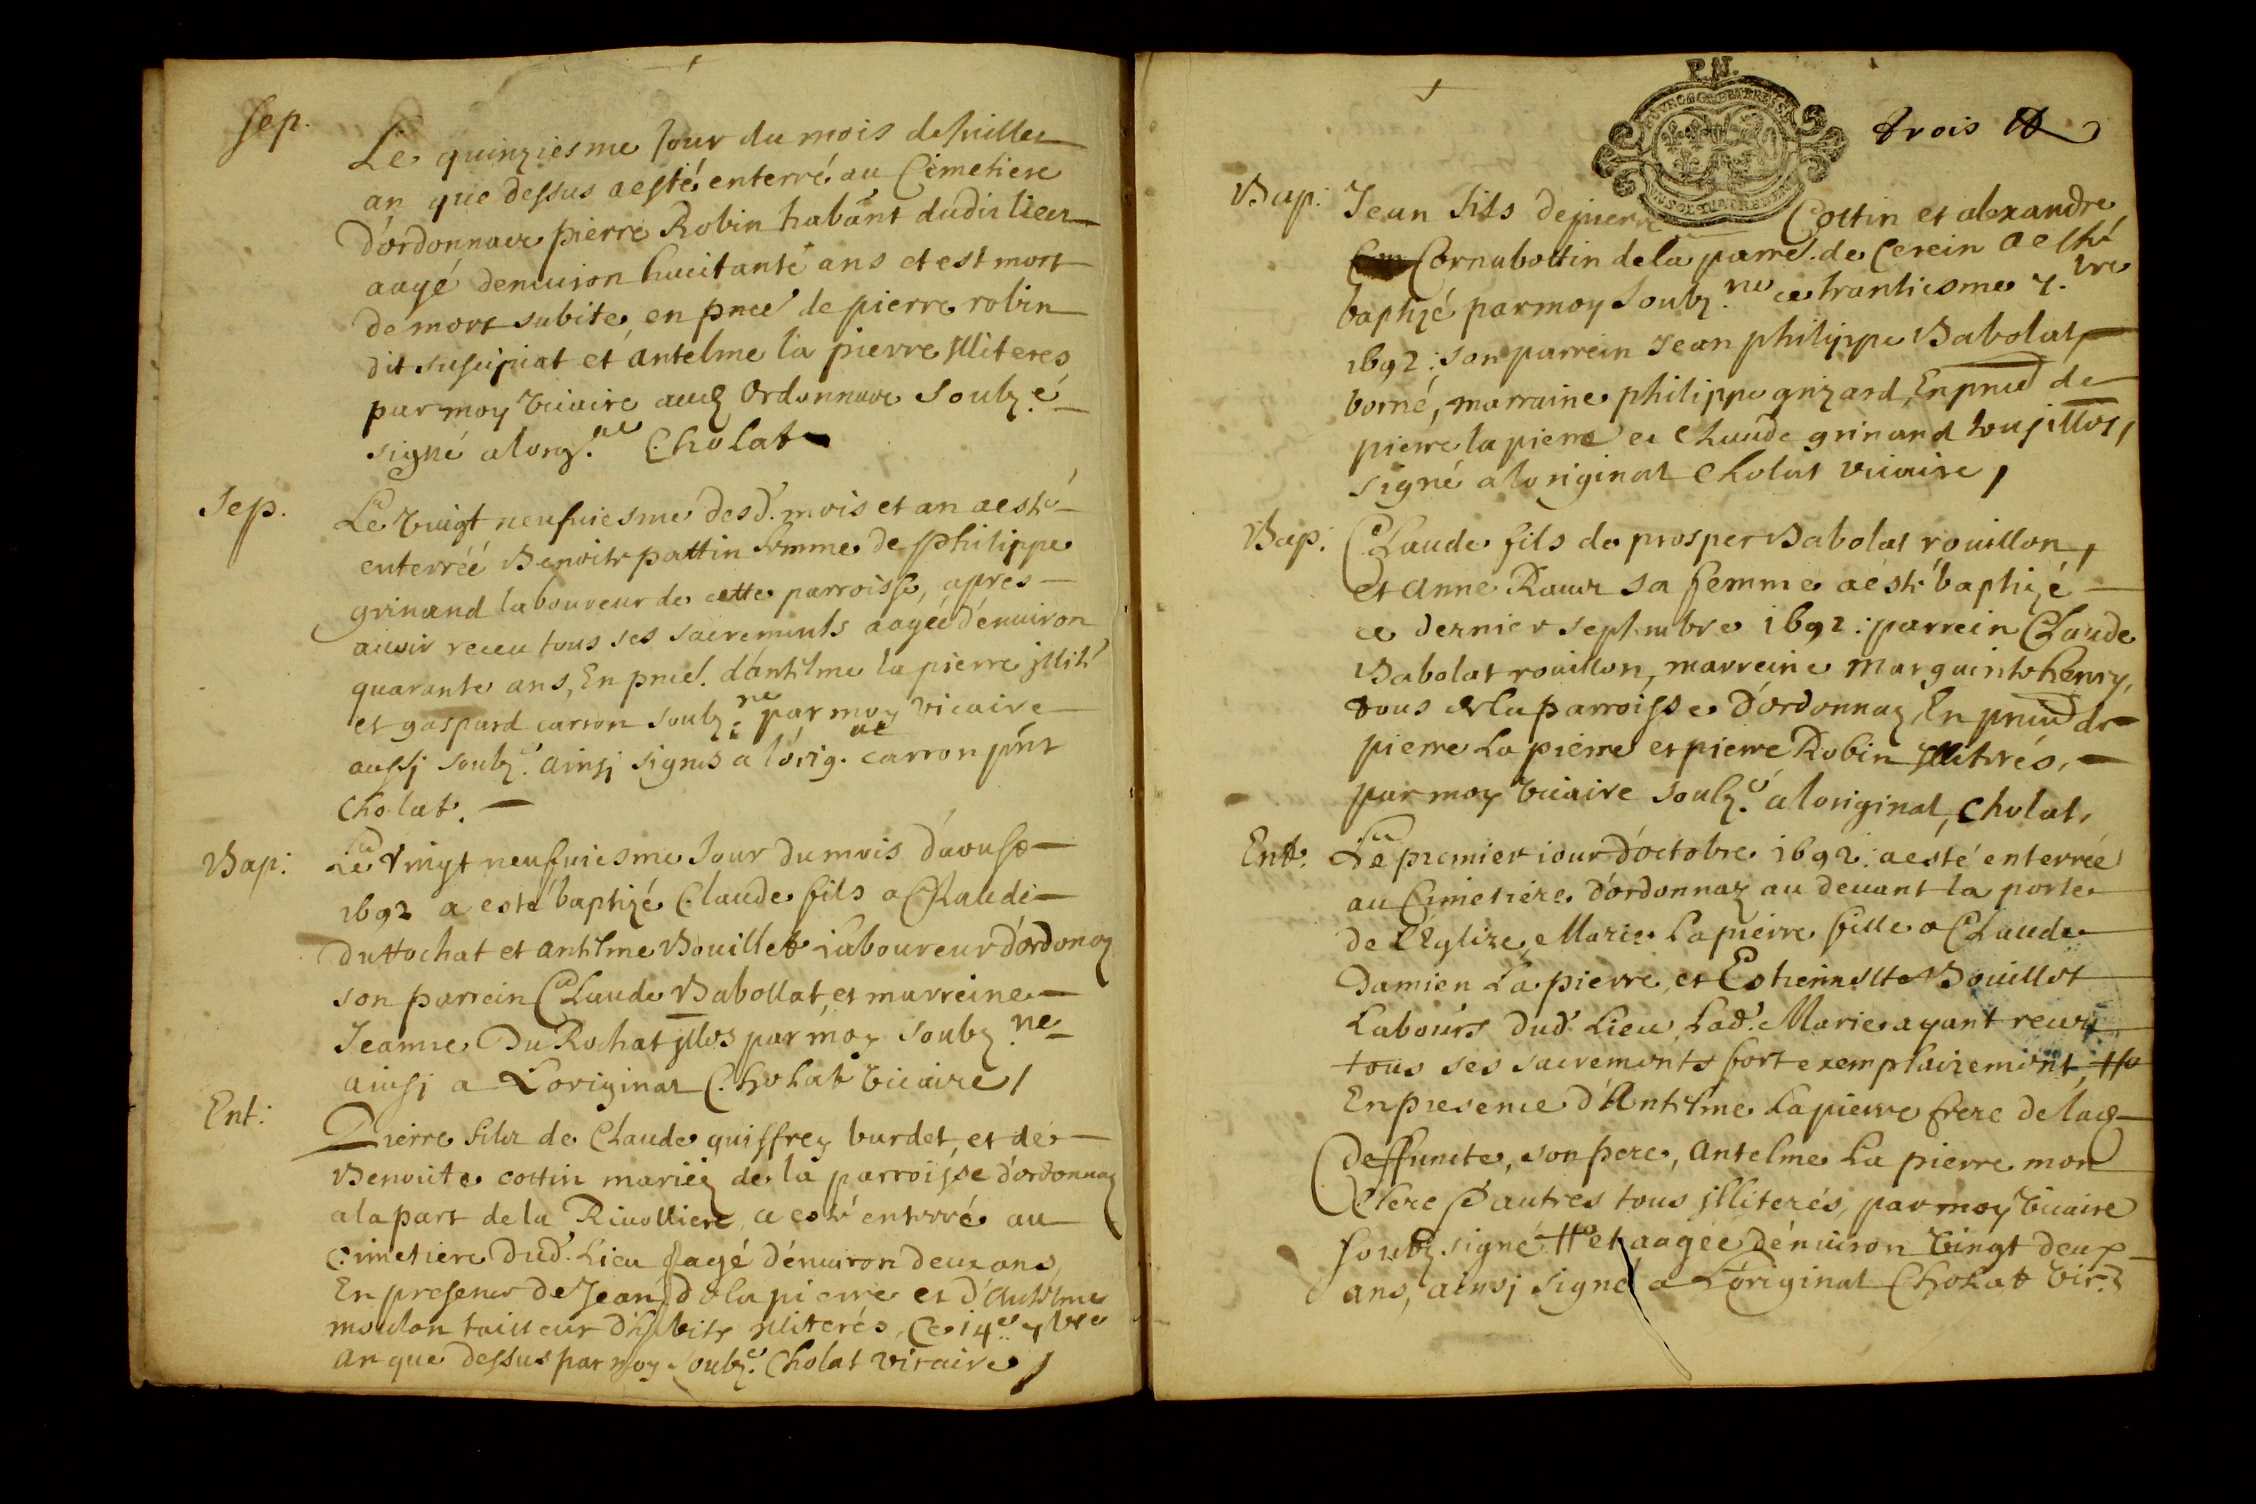 Sep.
Le quinziesme Jour du mois de Juillet
an que dessus a esté enterré au Cimetiere
d'ordonnaz pierre Robin habant dudit lieu
aagé denuiron huictante ans et est mort
de mort subite en pnce de pierre robin
dit suscipiat et antelme la pierre Illiteres
par moy vicaire aud Ordonnaz soubz.é
signé a lorig.al Cholat
Sep.
Le vingt neufuiesme desd. mois et an a esté
enterréé Benoite pattin femme de Philippe
grinand laboureur de cette parroisse, apres
auoir receu tous ses sacrements aagée d'enuiron
quarante ans, En pnce. d'antelme la pierre illit.
et gaspard carron soubz.né par moy vicaire
aussj soubz.é ainsj signés a l'orig.al carron pnt
Cholat.
Bap:
Le vingt neufuiesme Jour du mois d'aoust
1692 a esté baptizé Claude fils a Claude
Du Rochat et antelme Bouillet Laboureur d'ordonaz
son parrein Claude Babollat et marreine
Jeanne Du Rochat illes par moy soubz.né
ainsj a L'original Cholat vicaire /
Ent:
Pierre filz de Claude guiffrey burdet, et de
Benoite cottin mariéz de la parroisse d'ordonnaz
a la part de la Riuolliere a esté enterré au
Cimetiere dud. Lieu aagé d'enuiron deux ans
En presence de Jean de la pierre et d'Antelme
moulon tailleur d'habits illiterés, Ce 14e 7bre
an que dessus par moy soubz.é Cholat vicaire /
P.N.
trois
Bap: Jean fils de pierre Cottin et alexandre
Cornubottin de la parre. de Cerein a esté
baptizé par moy soubz.né ce trantiesme 7.bre
1692: son parrein Jean philippe Babolat
borné, marraine philippe grizard, En pnce de
pierre la pierre et Claude grinand tous illes,
signé a loriginal Cholat vicaire,
Bap: Claude fils de prosper Babolat rouillon,
et Anne Rauer sa femme a esté baptizé
ce dernier septembre 1692: parrein Claude
Babolat rouillon, marreine Marguerite henry,
tous de la parroisse D'ordonnaz, En pnce de
pierre La pierre et pierre Robin Illiterés,
par moy vicaire soubz.é a loriginal, Cholat,
Ent: Le premier iour d'octobre 1692: a esté enterrée
au Cimetiere d'ordonnaz au deuant la porte
de L'Eglize, Marie Lapierre fille a Claude
Damien La pierre, et Estiennette Bouillet
Labours dud. Lieu, Lad. Marie ayant receu
tous ses sacrements fort exemplairement
En presence d'Antelme Lapierre frere de lad
Deffuncte, son pere, Antelme La pierre mon
Clerc & autres tous illiterés, par moy vicaire
soubz signé et aagée d'enuiron vingt deux
ans, ainsj signé a L'original Cholat vic.